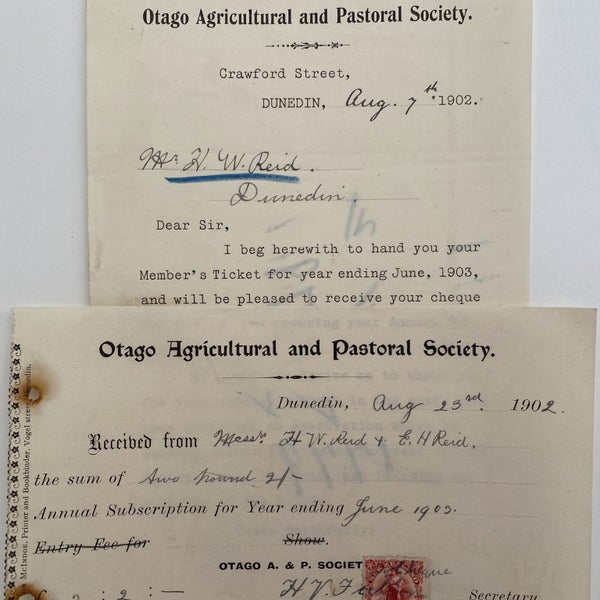 Otago Agricultural and Pastoral Society.
Crawford Street,
DUNEDIN, Aug. 7th 1902.
Mr. H. W. Reid.
Dunedin.
Dear Sir,
I beg herewith to hand you your
Member's Ticket for year ending June, 1903,
and will be pleased to receive your cheque
covering your Annual
Otago Agricultural and Pastoral Society.
Dunedin, Aug 23rd. 1902.
Received from Messrs H W Reid & E. H Reid.
the sum of two pound 2/-
Annual Subscription for Year ending June 1903.
Entry Fee for Show.
OTAGO A. & P. SOCIET
£ 2 : 2 : — H. V. Secretary
McINDOE, Printer and Bookbinder, Vogel street, Dunedin.